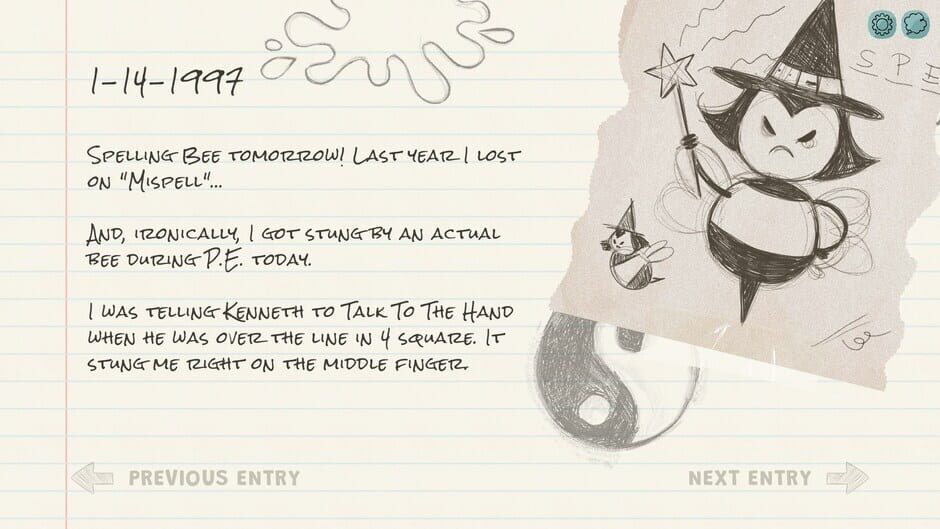 1-14-1997
SPELLING BEE TOMORROW! LAST YEAR I LOST
ON "MISPELL"...
AND, IRONICALLY, I GOT STUNG BY AN ACTUAL
BEE DURING P.E. TODAY.
I WAS TELLING KENNETH TO TALK TO THE HAND
WHEN HE WAS OVER THE LINE IN 4 SQUARE. IT
STUNG ME RIGHT ON THE MIDDLE FINGER.
S P E
PREVIOUS ENTRY
NEXT ENTRY